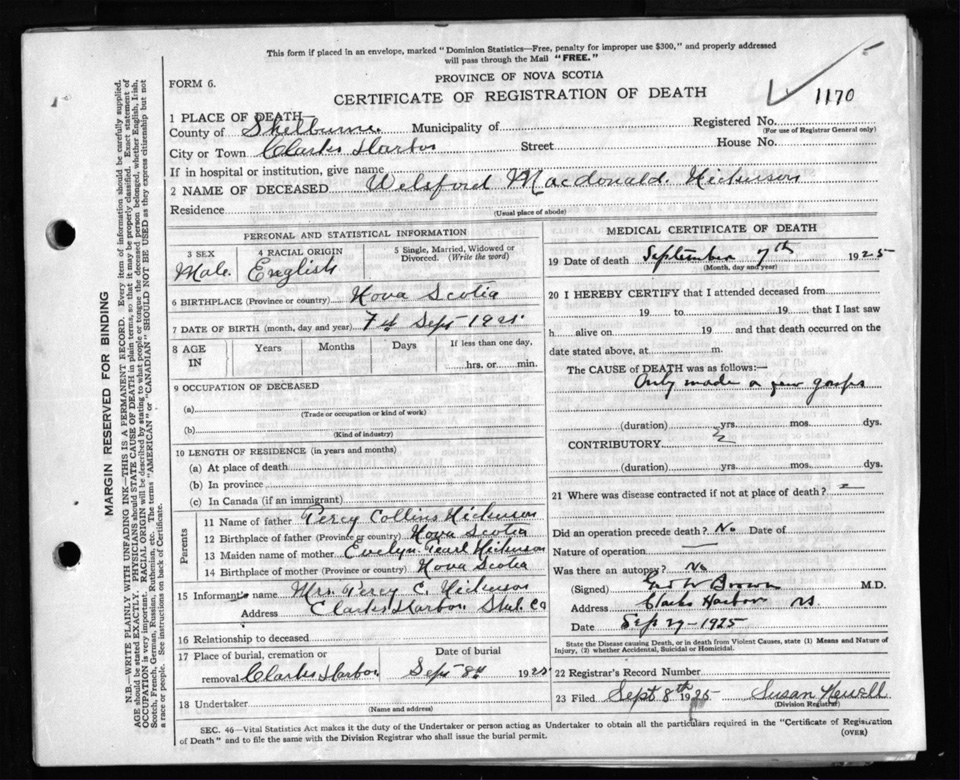 This form if placed in an envelope, marked "Dominion Statistics—Free, penalty for improper use $300," and properly addressed
will pass through the Mail "FREE."
PROVINCE OF NOVA SCOTIA
FORM 6.
CERTIFICATE OF REGISTRATION OF DEATH
1170
1 PLACE OF DEATH—
County of Shelburne Municipality of Registered No.
(For use of Registrar General only)
City or Town Clarks Harbor Street House No.
If in hospital or institution, give name
2 NAME OF DECEASED Welsford Macdonald Nickerson
Residence
(Usual place of abode)
PERSONAL AND STATISTICAL INFORMATION
3 SEX 4 RACIAL ORIGIN 5 Single, Married, Widowed or Divorced. (Write the word)
Male English
6 BIRTHPLACE (Province or country) Nova Scotia
7 DATE OF BIRTH (month, day and year) 7th Sept 1925
8 AGE IN Years Months Days If less than one day, hrs. or min.
9 OCCUPATION OF DECEASED
(a)
(Trade or occupation or kind of work)
(b)
(Kind of industry)
10 LENGTH OF RESIDENCE (in years and months)
(a) At place of death
(b) In province
(c) In Canada (if an immigrant)
Parents
11 Name of father Percy Collins Nickerson
12 Birthplace of father (Province or country) Nova Scotia
13 Maiden name of mother Evelyn Pearl Nickerson
14 Birthplace of mother (Province or country) Nova Scotia
15 Informant's name Mrs. Percy C. Nickerson
Address Clarks Harbor Shel. Co
16 Relationship to deceased
17 Place of burial, cremation or removal Clarks Harbor Date of burial Sept 8th 1925
18 Undertaker
(Name and address)
MEDICAL CERTIFICATE OF DEATH
19 Date of death September 7th 1925
(Month, day and year)
20 I HEREBY CERTIFY that I attended deceased from
19 to 19 that I last saw
h alive on 19 and that death occurred on the
date stated above, at m.
The CAUSE of DEATH was as follows:—
Only made a few gasps
(duration) yrs. mos. dys.
CONTRIBUTORY
(duration) yrs. mos. dys.
21 Where was disease contracted if not at place of death?
Did an operation precede death? No Date of
Nature of operation
Was there an autopsy? No
(Signed) W Brown M.D.
Address Clarks Harbor N.S.
Date Sep 29-1925
State the Disease causing Death, or in death from Violent Causes, state (1) Means and Nature of
Injury, (2) whether Accidental, Suicidal or Homicidal.
22 Registrar's Record Number
23 Filed Sept 8th 1925 Susan Newell
(Division Registrar)
SEC. 46—Vital Statistics Act makes it the duty of the Undertaker or person acting as Undertaker to obtain all the particulars required in the "Certificate of Registration
of Death" and to file the same with the Division Registrar who shall issue the burial permit.
(OVER)
MARGIN RESERVED FOR BINDING
N.B.—WRITE PLAINLY WITH UNFADING INK—THIS IS A PERMANENT RECORD. Every item of information should be carefully supplied.
AGE should be stated EXACTLY. PHYSICIANS should STATE CAUSE OF DEATH in plain terms, so that it may be properly classified. Exact statement of
OCCUPATION is very important. RACIAL ORIGIN will be described by stating to what people or tongue the deceased person belonged, whether English, Irish,
Scotch, French, German, Russian, Ruthenian, etc. The terms "AMERICAN" or "CANADIAN" SHOULD NOT BE USED as they express citizenship but not
a race or people. See instructions on back of Certificate.